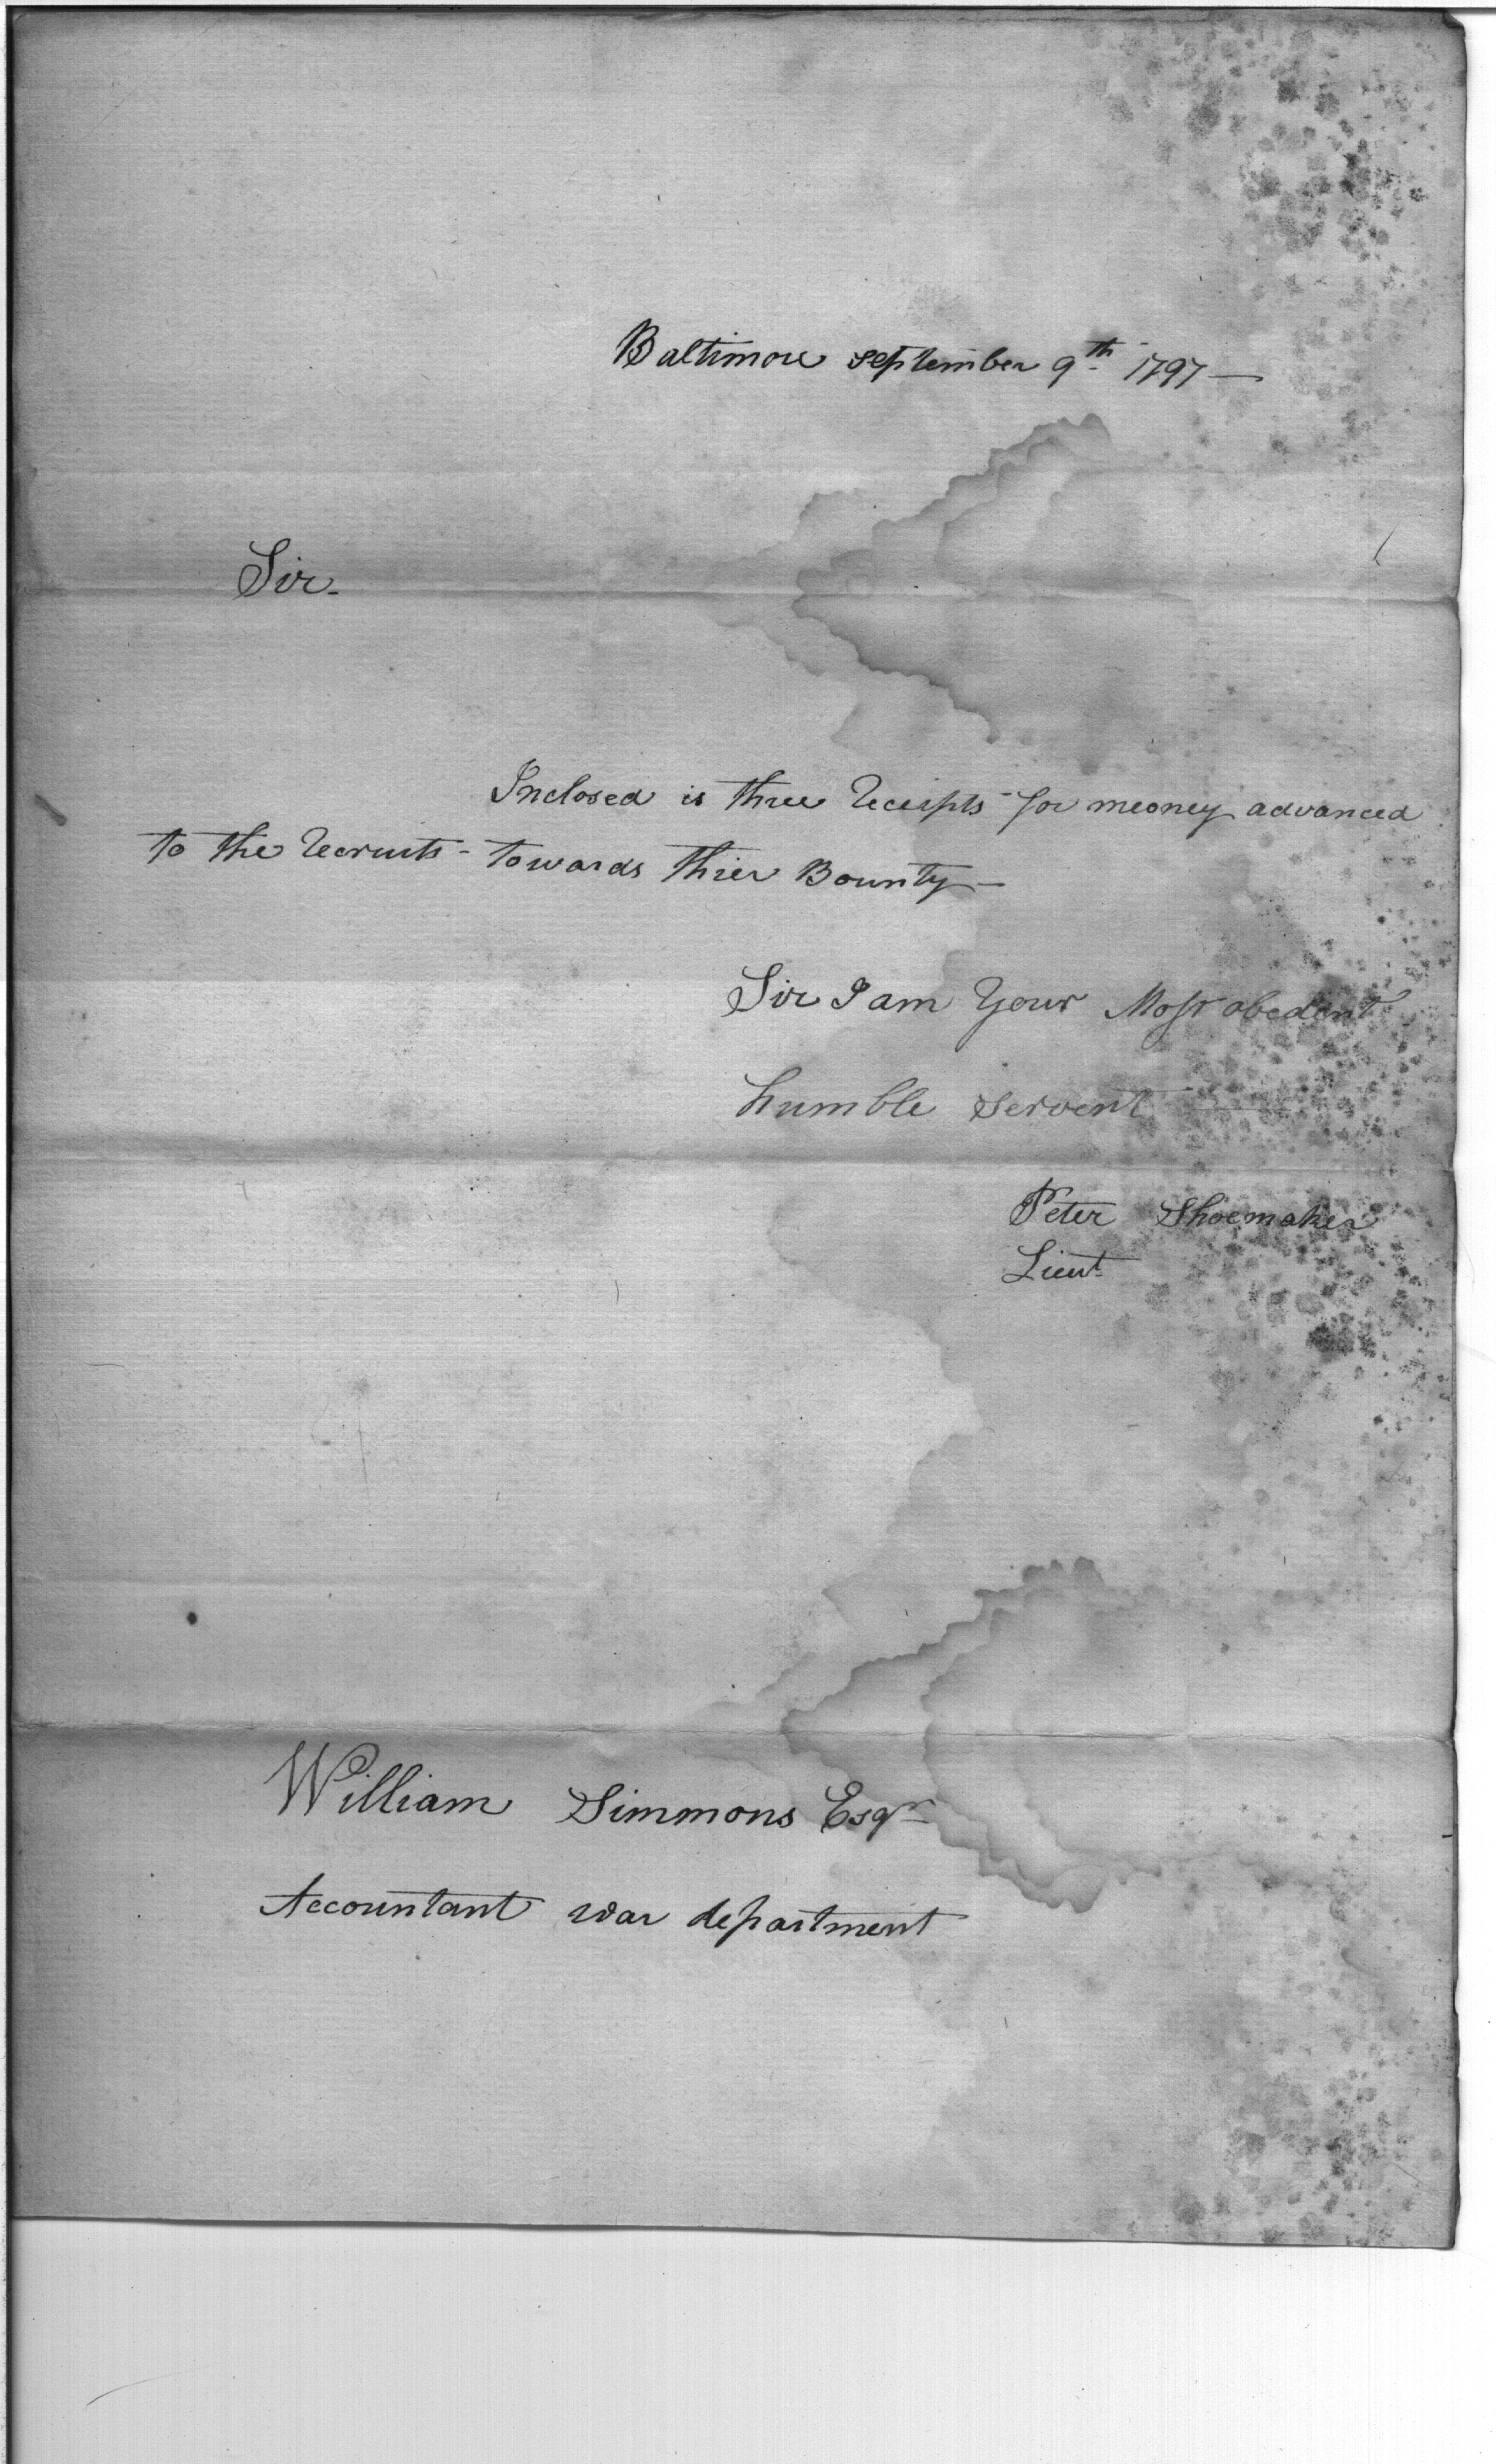 Baltimore september 9th 1797 —
Sir -
Inclosed is three Receipts for meoney advanced
to the Recruits - towards thier Bounty —
Sir I am Your Most obedent
humble servent
Peter Shoemaker
Lieut
William Simmons Esqr
Accountant war department